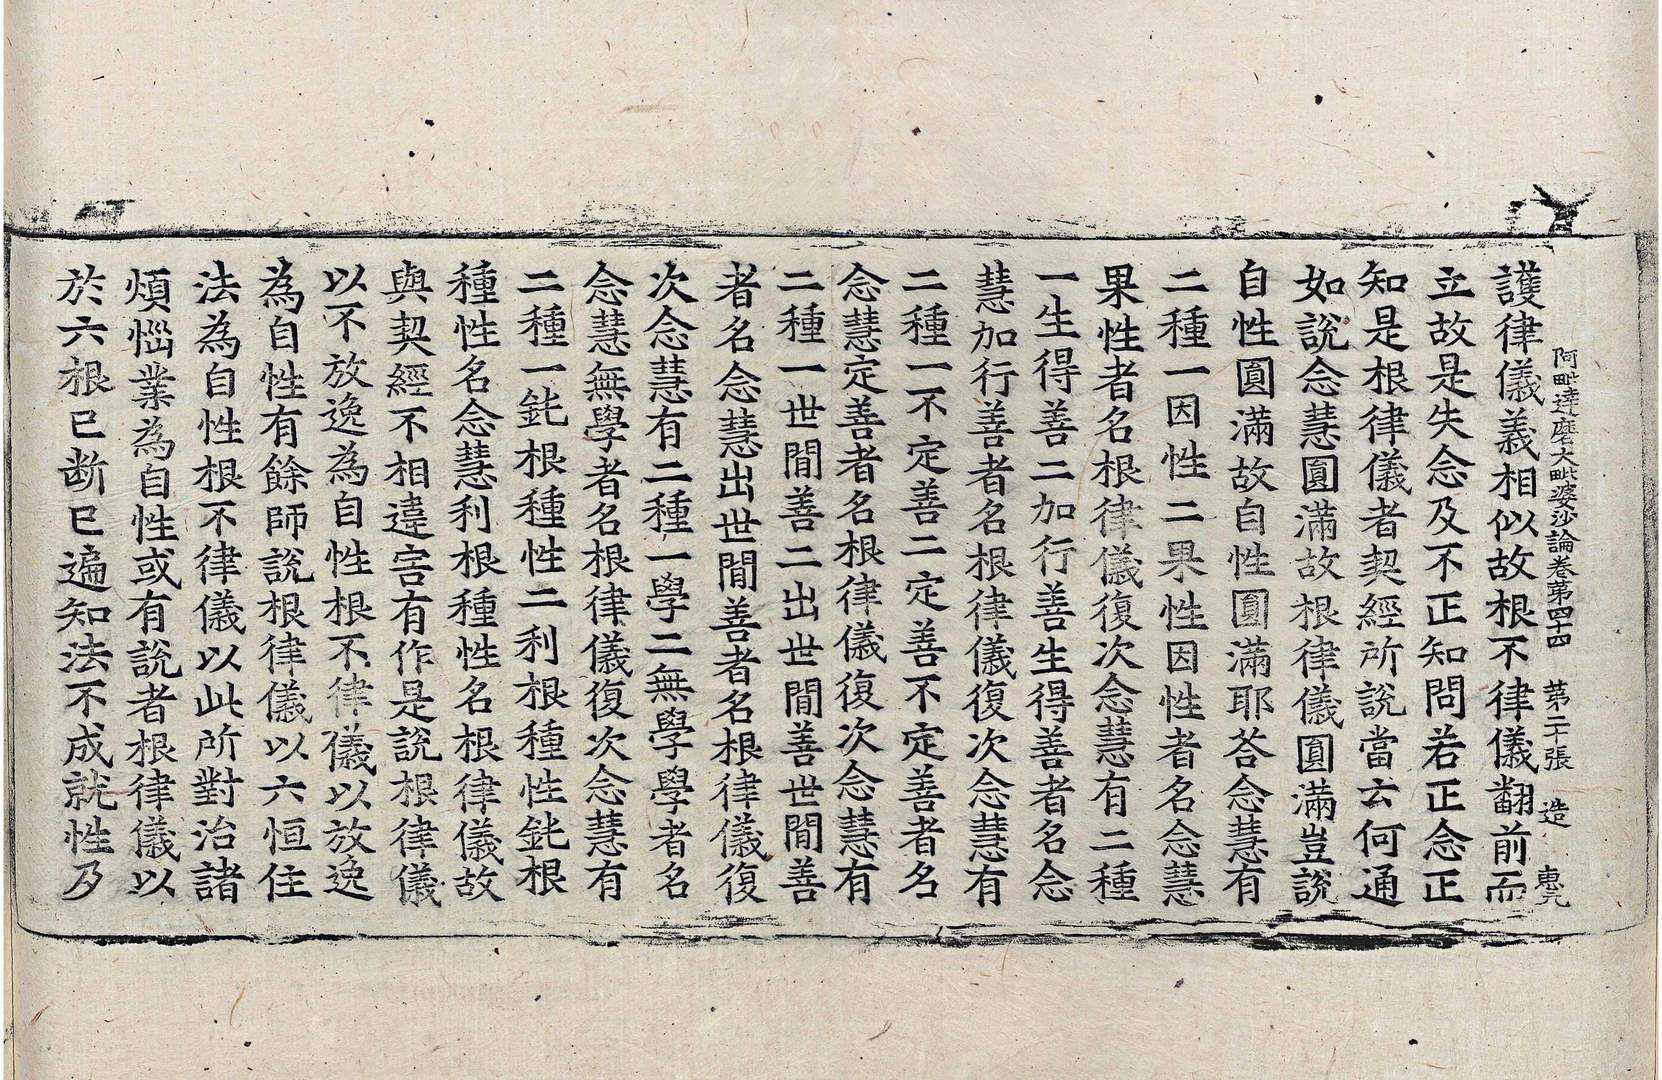 阿毗達磨大毗婆沙論卷第四十四　第二十張　造　惠元
護律儀義相似故根不律儀翻前而
立故是失念及不正知問若正念正
知是根律儀者契經所說當云何通
如說念慧圓滿故根律儀圓滿豈說
自性圓滿故自性圓滿耶荅念慧有
二種一因性二果性因性者名念慧
果性者名根律儀復次念慧有二種
一生得善二加行善生得善者名念
慧加行善者名根律儀復次念慧有
二種一不定善二定善不定善者名
念慧定善者名根律儀復次念慧有
二種一世間善二出世間善世間善
者名念慧出世間善者名根律儀復
次念慧有二種一學二無學學者名
念慧無學者名根律儀復次念慧有
二種一鈍根種性二利根種性鈍根
種性名念慧利根種性名根律儀故
與契經不相違害有作是說根律儀
以不放逸為自性根不律儀以放逸
為自性有餘師說根律儀以六恒住
法為自性根不律儀以此所對治諸
煩惱業為自性或有說者根律儀以
於六根已断已遍知法不成就性及